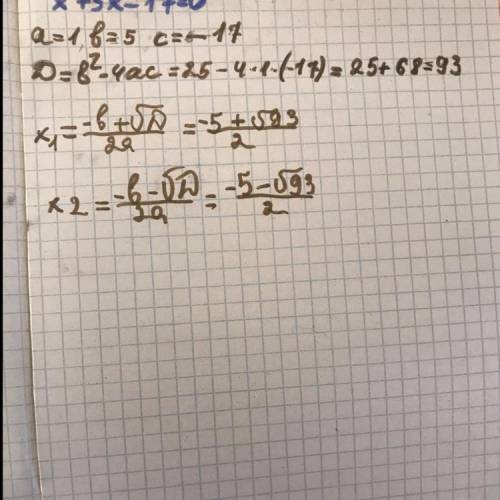 x²+5x-17=0
a=1, b=5 c=-17
D=b²-4ac=25-4·1·(-17)=25+68=93
x₁=(-b+√D)/2a=(-5+√93)/2
x2=(-b-√D)/2a=(-5-√93)/2